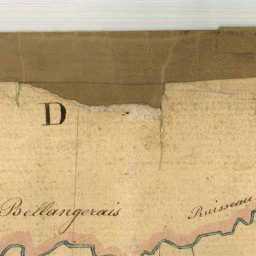 D
Bellangerais
Ruisseau